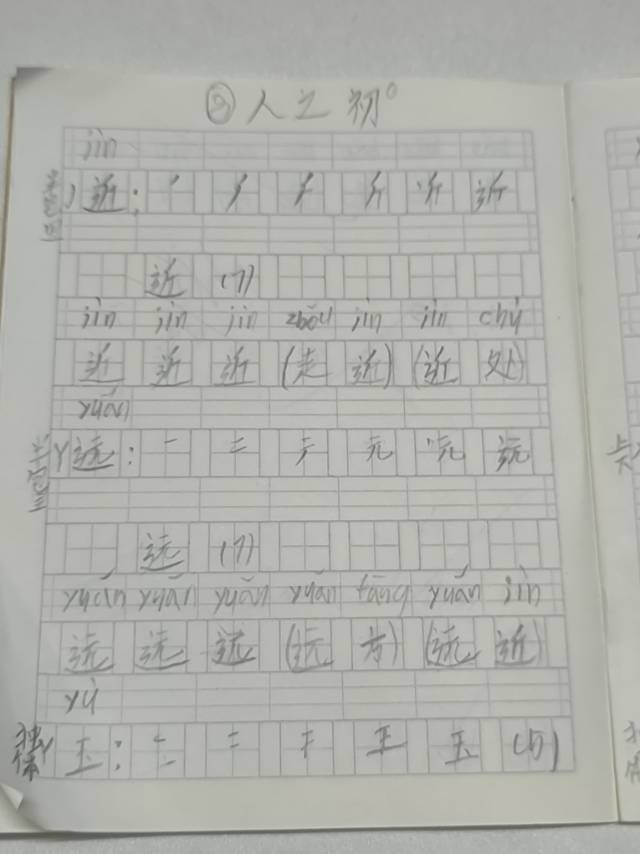 ③人之初。
jìn
半包围 近: ′ 斤 近
近 (7)
jìn jìn jìn zhǒu jìn jìn chǔ
近 近 近 (走 近) (近 处)
yuǎn
半包围 远: 一 二 テ 元 远
远 (7)
yuǎn yuǎn yuǎn yuǎn fāng yuǎn jìn
远 远 远 (远 方) (远 近)
yù
独体 玉: 一 二 干 王 玉 (5)